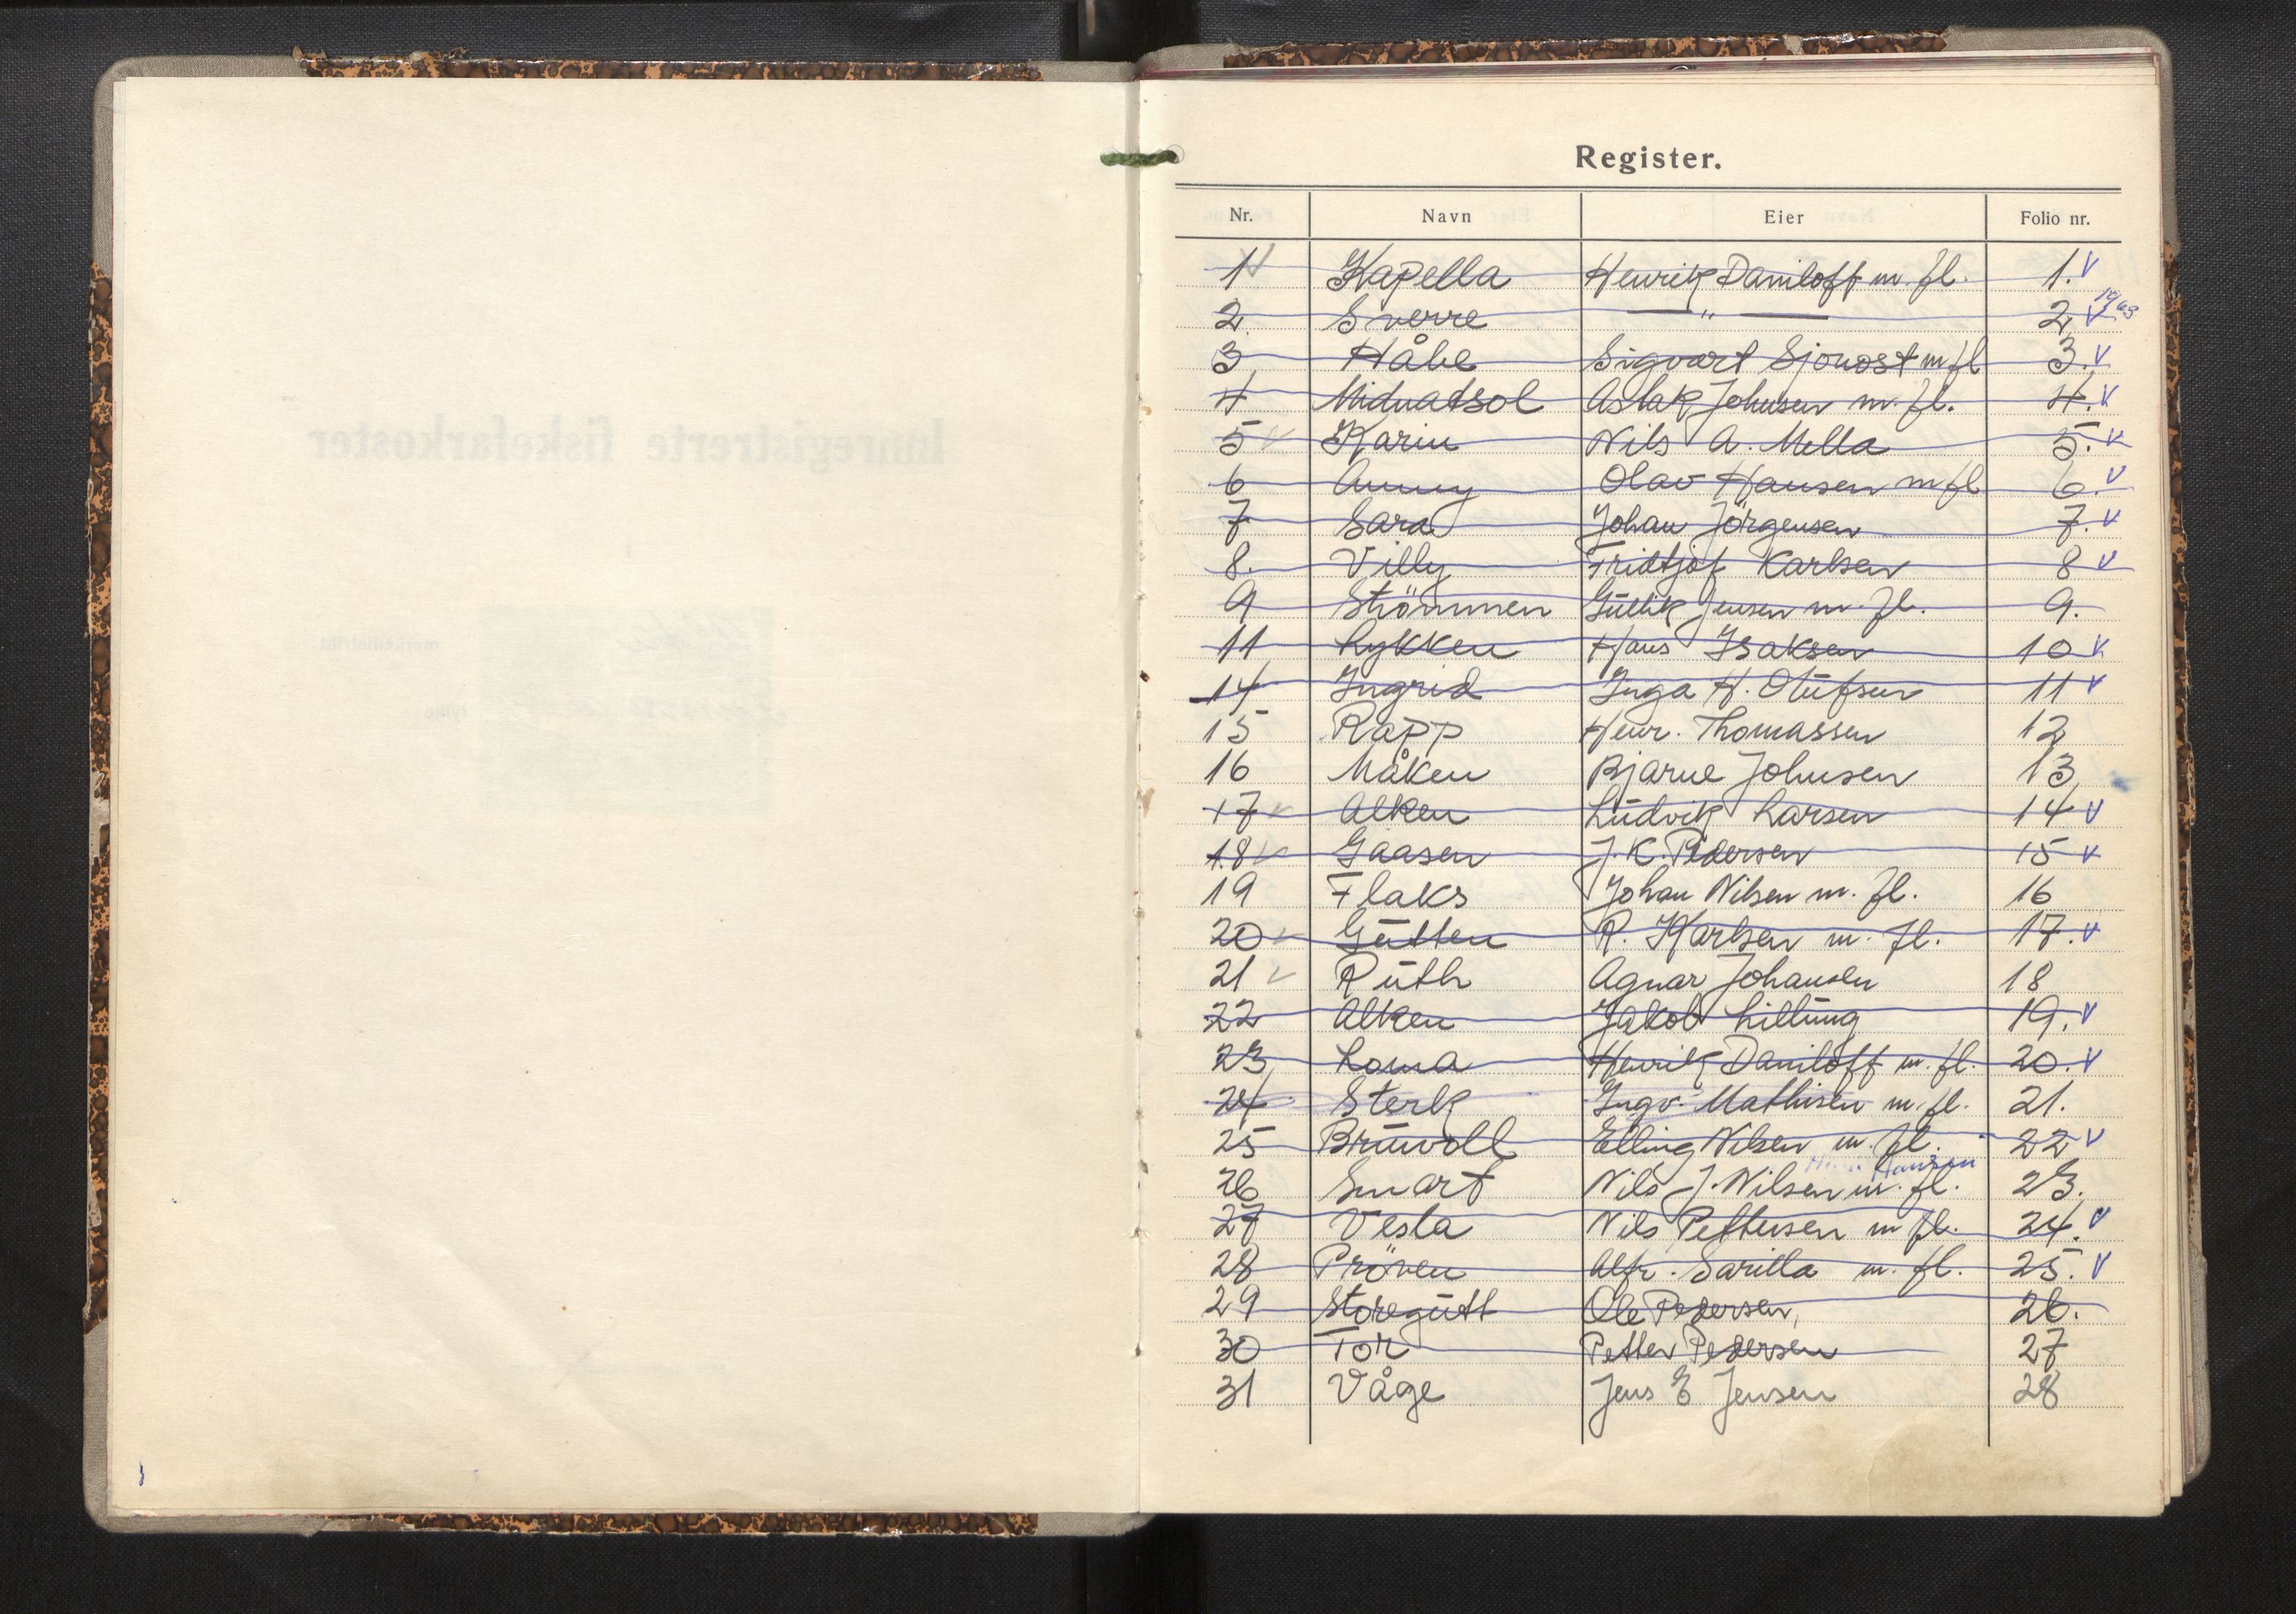 Register.
Nr. Navn Eier Folio nr.
1 Kapella Henrik Daniloff m. fl. 1. v
2. Sverre — " — 2 v
3 Håbe Sigvart Sjonost m fl 3. v
4 Midnatsol Aslak Johnsen m. fl. 4. v
5 v Karin Nils A. Mella 5. v
6 Anny Olav Hansen m fl 6. v
7 Sara Johan Jörgensen 7. v
8. Villy Fridtjof Karlsen 8 v
9 Strömmen Gullik Jensen m. fl. 9.
11 Lykken Hans Isaksen 10 v
14 Ingrid Inga H. Olufsen 11 v
15 Rapp Henr. Thomassen 12
16 Måken Bjarne Johnsen 13
17 v Alken Ludvik Larsen 14 v
18 v Gaasen J. K. Pedersen 15 v
19 Flaks Johan Nilsen m. fl. 16
20 v Gutten R. Karlsen m. fl. 17. v
21 v Ruth Agnar Johansen 18
22 Alken Jakob Lillung 19. v
23 Loma Henrik Daniloff m. fl. 20. v
24 Sterk Ingv. Mathisen m. fl. 21.
25 Brunvoll Elling Nilsen m. fl. 22 v
Hansen
26 Smart Nils J. Nilsen m. fl. 23.
27 Vesla Nils Pettersen m fl. 24. v
28 Pröven Alfr. Sarilla m. fl. 25. v
29 Storegutt Ole Pedersen, 26.
30 Tor Petter Pedersen 27
31 Våge Jens E Jensen 28